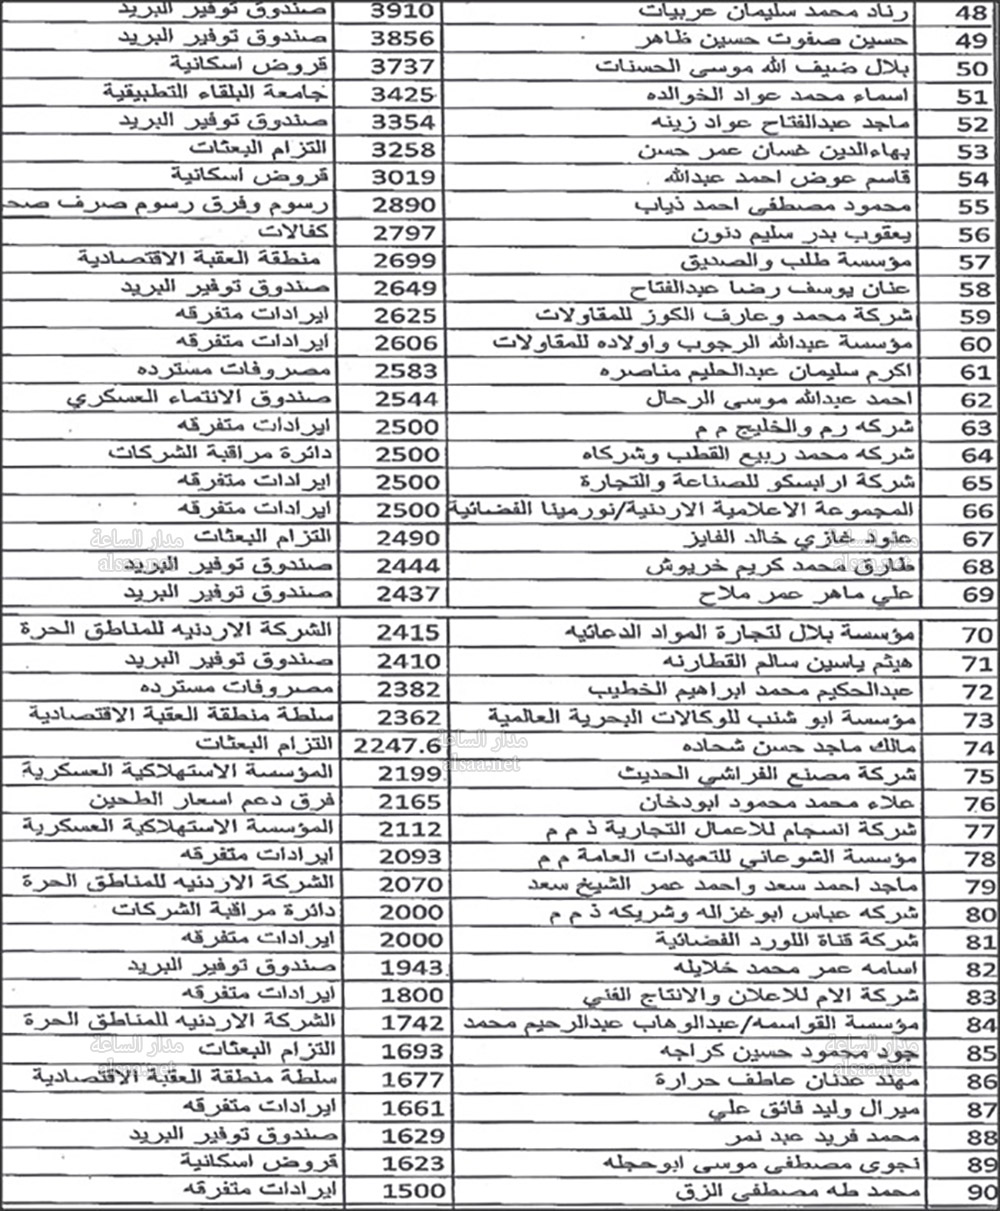 48 رناد محمد سليمان عربيات 3910 صندوق توفير البريد
49 حسين صفوت حسين ظاهر 3856 صندوق توفير البريد
50 بلال ضيف الله موسى الحسنات 3737 قروض اسكانية
51 اسماء محمد عواد الخوالده 3425 جامعة البلقاء التطبيقية
52 ماجد عبدالفتاح عواد زينه 3354 صندوق توفير البريد
53 بهاءالدين غسان عمر حسن 3258 التزام البعثات
54 قاسم عوض احمد عبدالله 3019 قروض اسكانية
55 محمود مصطفى احمد ذياب 2890 رسوم وفرق رسوم صرف صح
56 يعقوب بدر سليم دنون 2797 كفالات
57 مؤسسة طلب والصديق 2699 منطقة العقبة الاقتصادية
58 عنان يوسف رضا عبدالفتاح 2649 صندوق توفير البريد
59 شركة محمد وعارف الكوز للمقاولات 2625 ايرادات متفرقه
60 مؤسسة عبدالله الرجوب واولاده للمقاولات 2606 ايرادات متفرقه
61 اكرم سليمان عبدالحليم مناصره 2583 مصروفات مسترده
62 احمد عبدالله موسى الرحال 2544 صندوق الائتماء العسكري
63 شركه رم والخليج م م 2500 ايرادات متفرقه
64 شركه محمد ربيع القطب وشركاه 2500 دائرة مراقبة الشركات
65 شركة ارابسكو للصناعة والتجارة 2500 ايرادات متفرقه
66 المجموعة الاعلامية الاردنية/نورمينا الفضائية 2500 ايرادات متفرقه
67 عنود غازي خالد الفايز 2490 التزام البعثات
مدار الساعة
alsaa.net
مدار الساعة
alsaa.net
68 طارق محمد كريم خريوش 2444 صندوق توفير البريد
69 علي ماهر عمر ملاح 2437 صندوق توفير البريد
70 مؤسسة بلال لتجارة المواد الدعائيه 2415 الشركة الاردنيه للمناطق الحرة
71 هيثم ياسين سالم القطارنه 2410 صندوق توفير البريد
72 عبدالحكيم محمد ابراهيم الخطيب 2382 مصروفات مسترده
73 مؤسسة ابو شنب للوكالات البحرية العالمية 2362 سلطة منطقة العقبة الاقتصادية
74 مالك ماجد حسن شحاده 2247.6 التزام البعثات
مدار الساعة
alsaa.net
75 شركة مصنع الفراشي الحديث 2199 المؤسسة الاستهلاكية العسكرية
76 علاء محمد محمود ابودخان 2165 فرق دعم اسعار الطحين
77 شركة انسجام للاعمال التجارية ذ م م 2112 المؤسسة الاستهلاكية العسكرية
78 مؤسسة الشوعاني للتعهدات العامة م م 2093 ايرادات متفرقه
79 ماجد احمد سعد واحمد عمر الشيخ سعد 2070 الشركة الاردنيه للمناطق الحرة
80 شركه عباس ابوغزاله وشريكه ذ م م 2000 دائرة مراقبة الشركات
81 شركة قناة اللورد الفضائية 2000 ايرادات متفرقه
82 اسامه عمر محمد خلايله 1943 صندوق توفير البريد
83 شركة الام للاعلان والانتاج الفني 1800 ايرادات متفرقه
84 مؤسسة القواسمه/عبدالوهاب عبدالرحيم محمد 1742 الشركة الاردنيه للمناطق الحرة
85 جود محمود حسين كراجه 1693 التزام البعثات
مدار الساعة
alsaa.net
مدار الساعة
alsaa.net
86 مهند عدنان عاطف حرارة 1677 سلطة منطقة العقبة الاقتصادية
87 ميرال وليد فائق علي 1661 ايرادات متفرقه
88 محمد فريد عبد نمر 1629 صندوق توفير البريد
89 نجوى مصطفى موسى ابوحجله 1623 قروض اسكانية
90 محمد طه مصطفى الزق 1500 ايرادات متفرقه